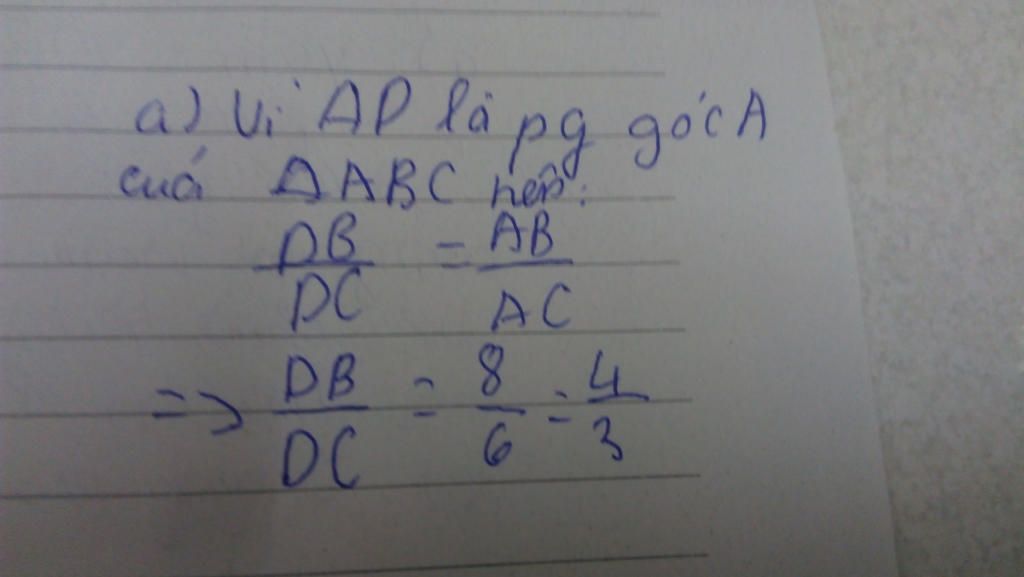 a) Vì AD là pg góc A
của ΔABC nên:
DB/DC = AB/AC
=> DB/DC = 8/6 = 4/3